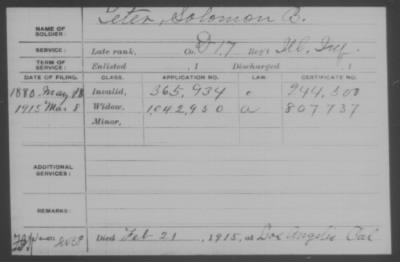 NAME OF SOLDIER: Teter, Solomon B.
SERVICE: Late rank, Co. D 17 Reg't Ill, Inf.
TERM OF SERVICE: Enlisted , 1 Discharged , 1
DATE OF FILING. CLASS. APPLICATION NO. LAW. CERTIFICATE NO.
1880 May 18 Invalid, 365,934 c 944,500
1915 Mar 8 Widow, 1,042,950 a 807737
Minor,
ADDITIONAL SERVICES:
REMARKS:
Died Feb 21 , 1915, at Los Angeles Cal